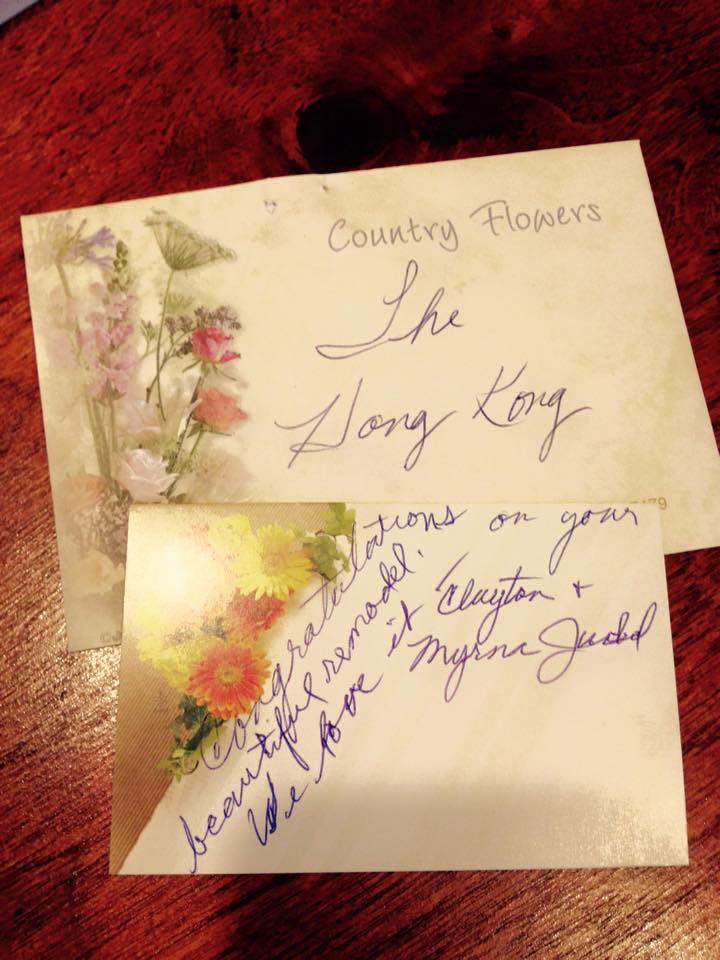 Country Flowers
The
Hong Kong
79
Congratulations on your
beautiful remodel!
We love it Clayton +
Myrna